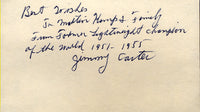 Best Wishes
To Mother Kemp & Family
From Former Lightweight Champion
of the World 1951-1955
Jimmy Carter